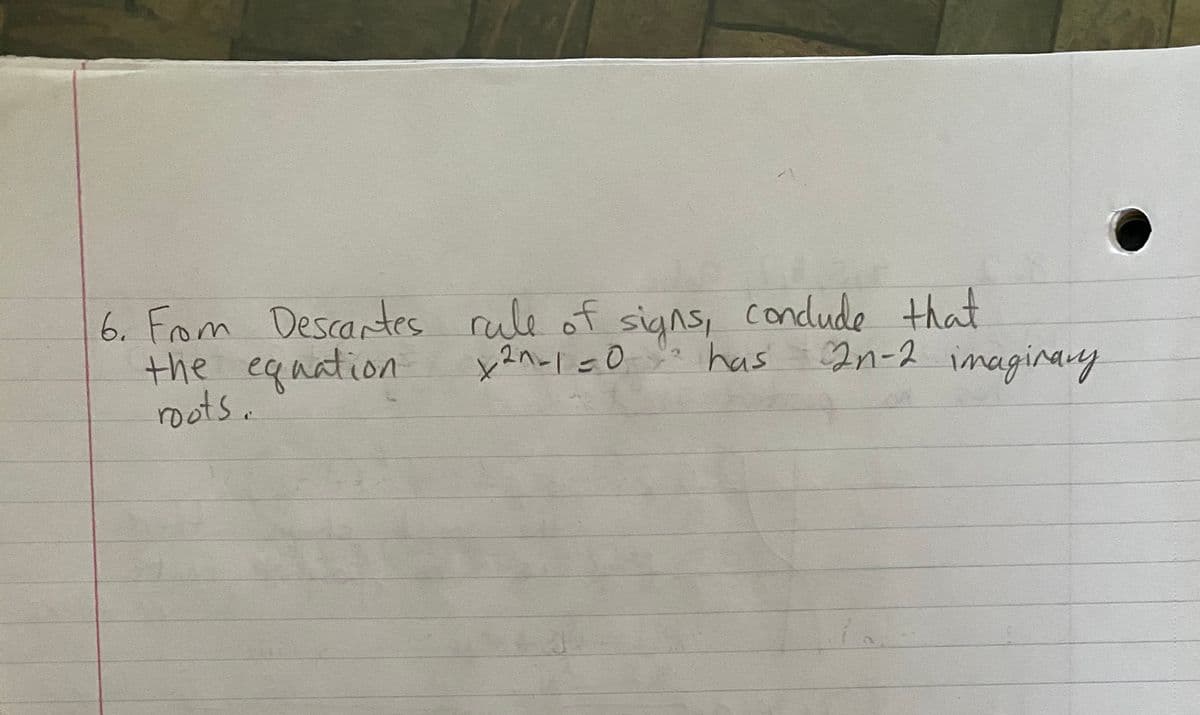 6. From Descartes rule of signs, conclude that
the equation x²ⁿ-1=0 has 2n-2 imaginary
roots.